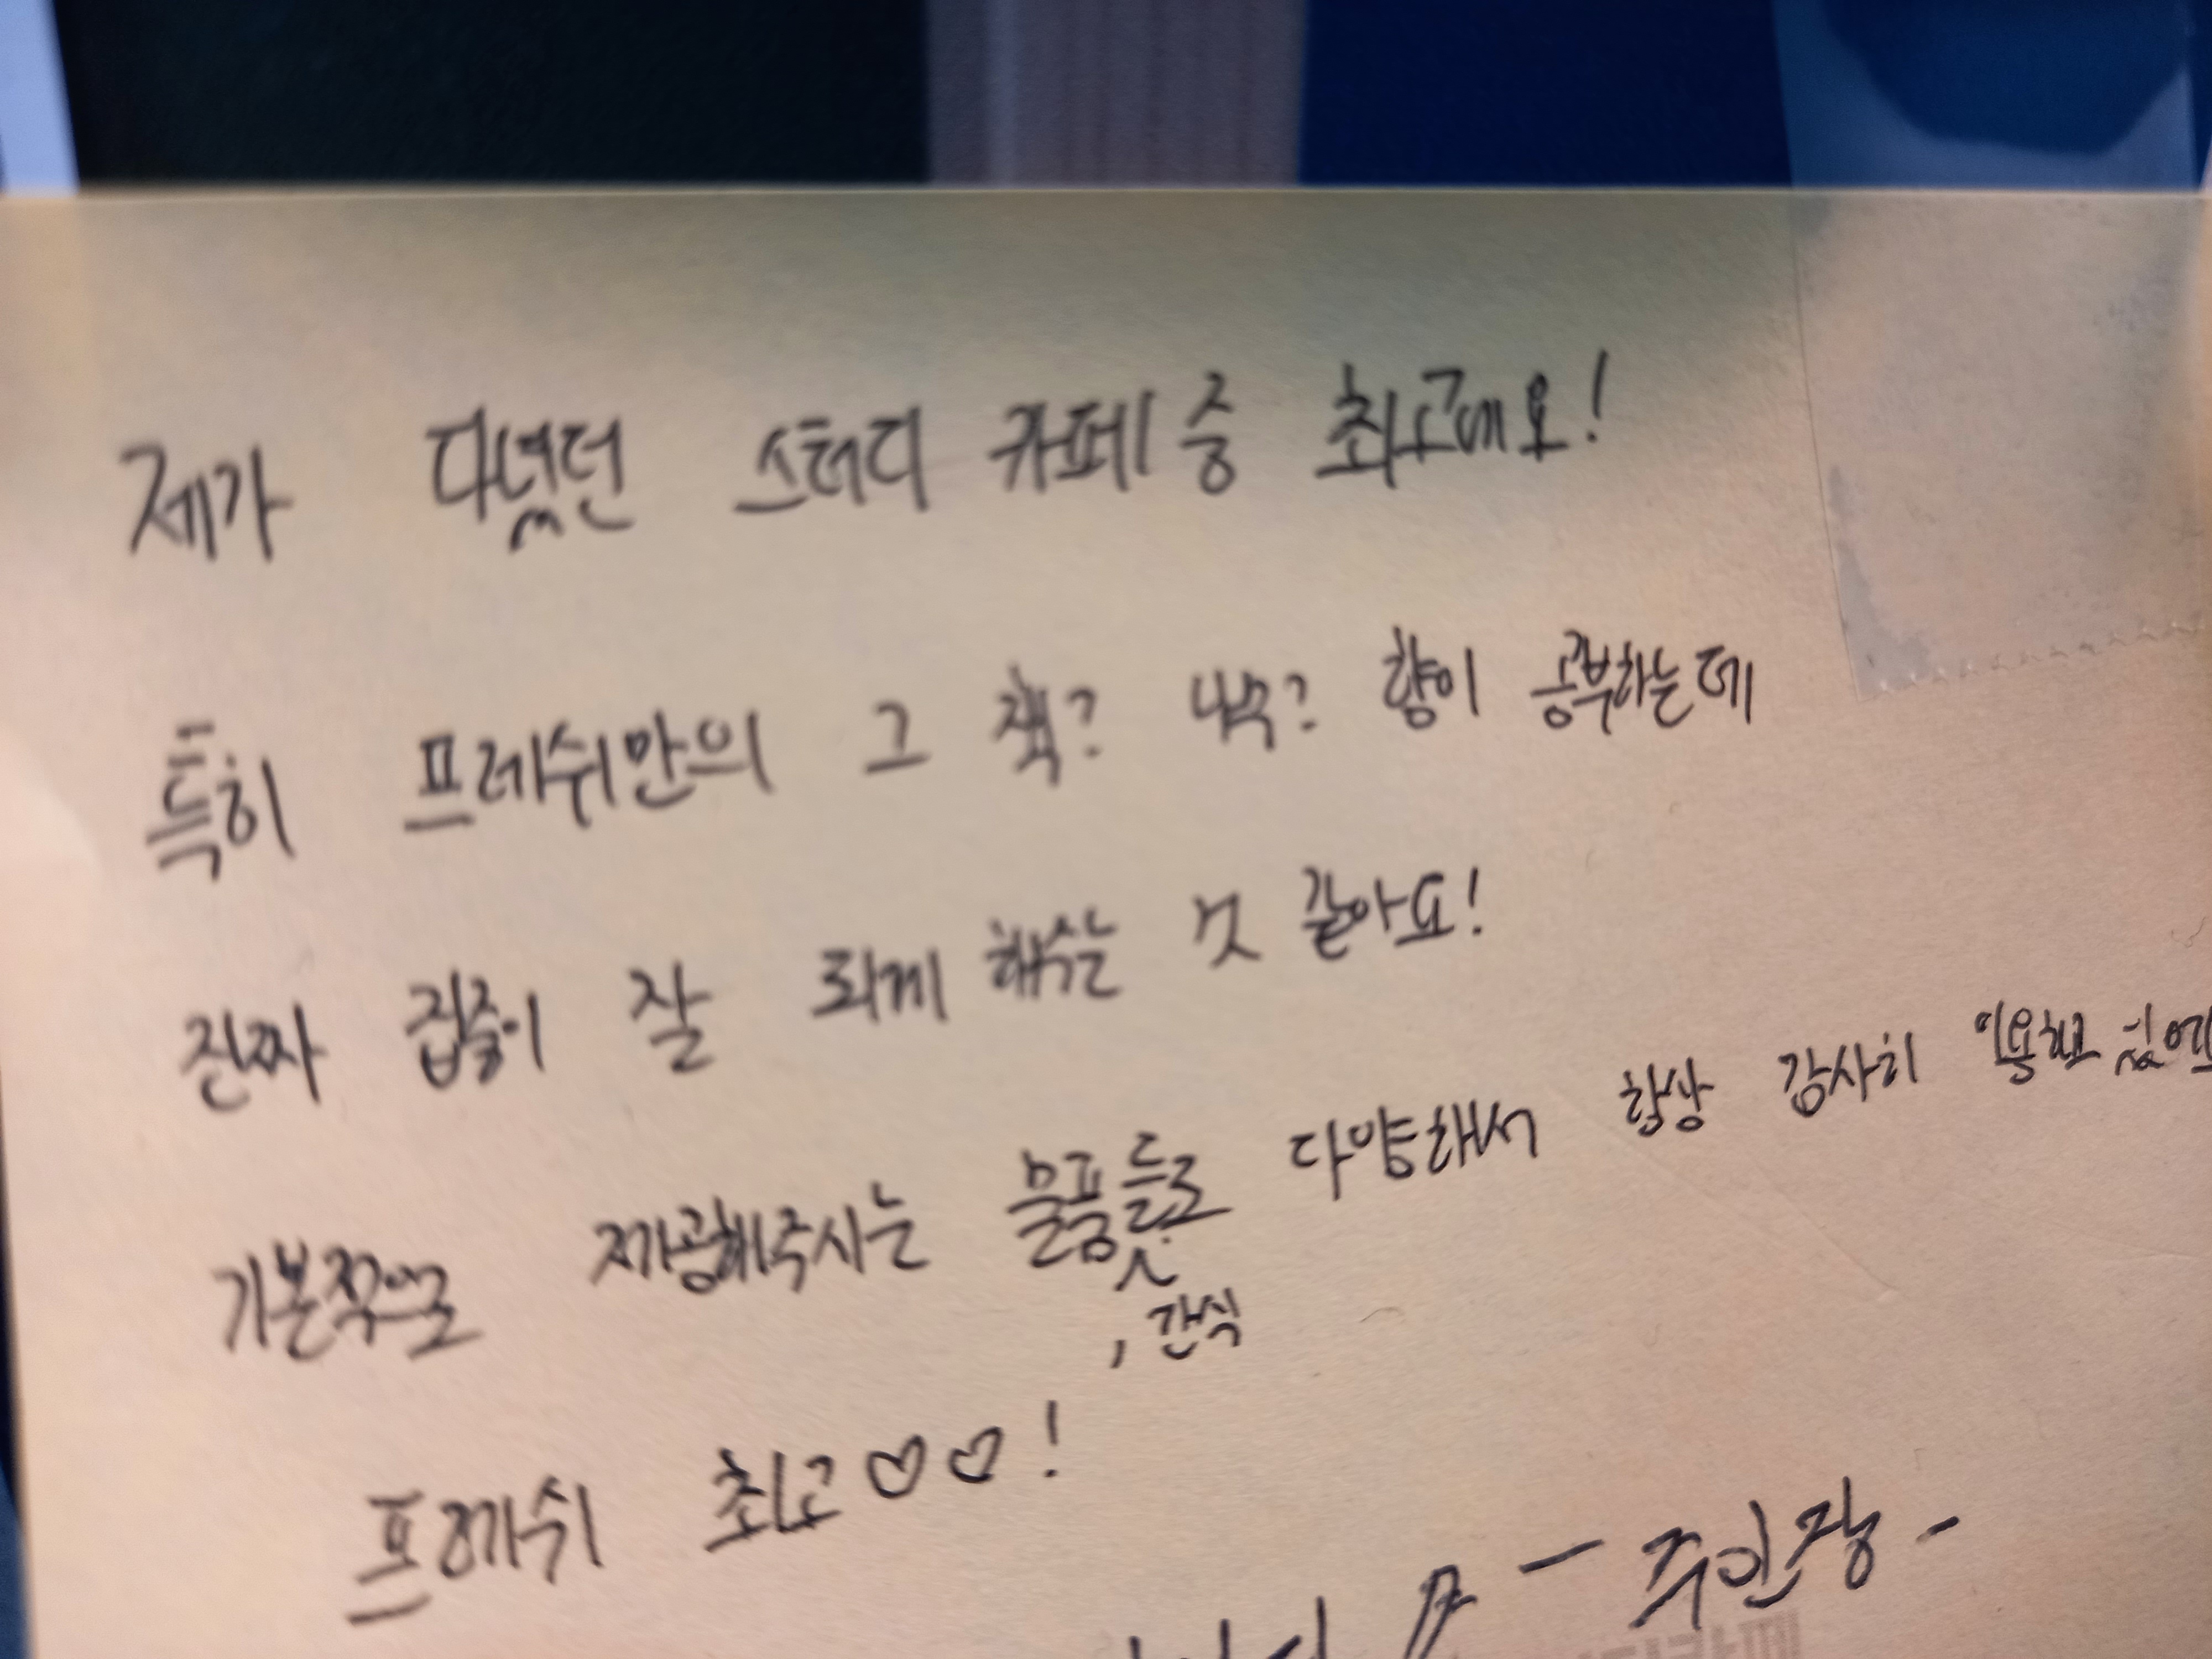 제가 다녔던 스터디 카페 중 최고에요!
특히 프레쉬만의 그 책? 나무? 향이 공부하는데
진짜 집중이 잘 되게 해주는 것 같아요!
기본적으로 제공해주시는 물품들, 간식도 다양해서 항상 감사히 이용하고 있어요
프레쉬 최고♡♡!
- 주인장 -